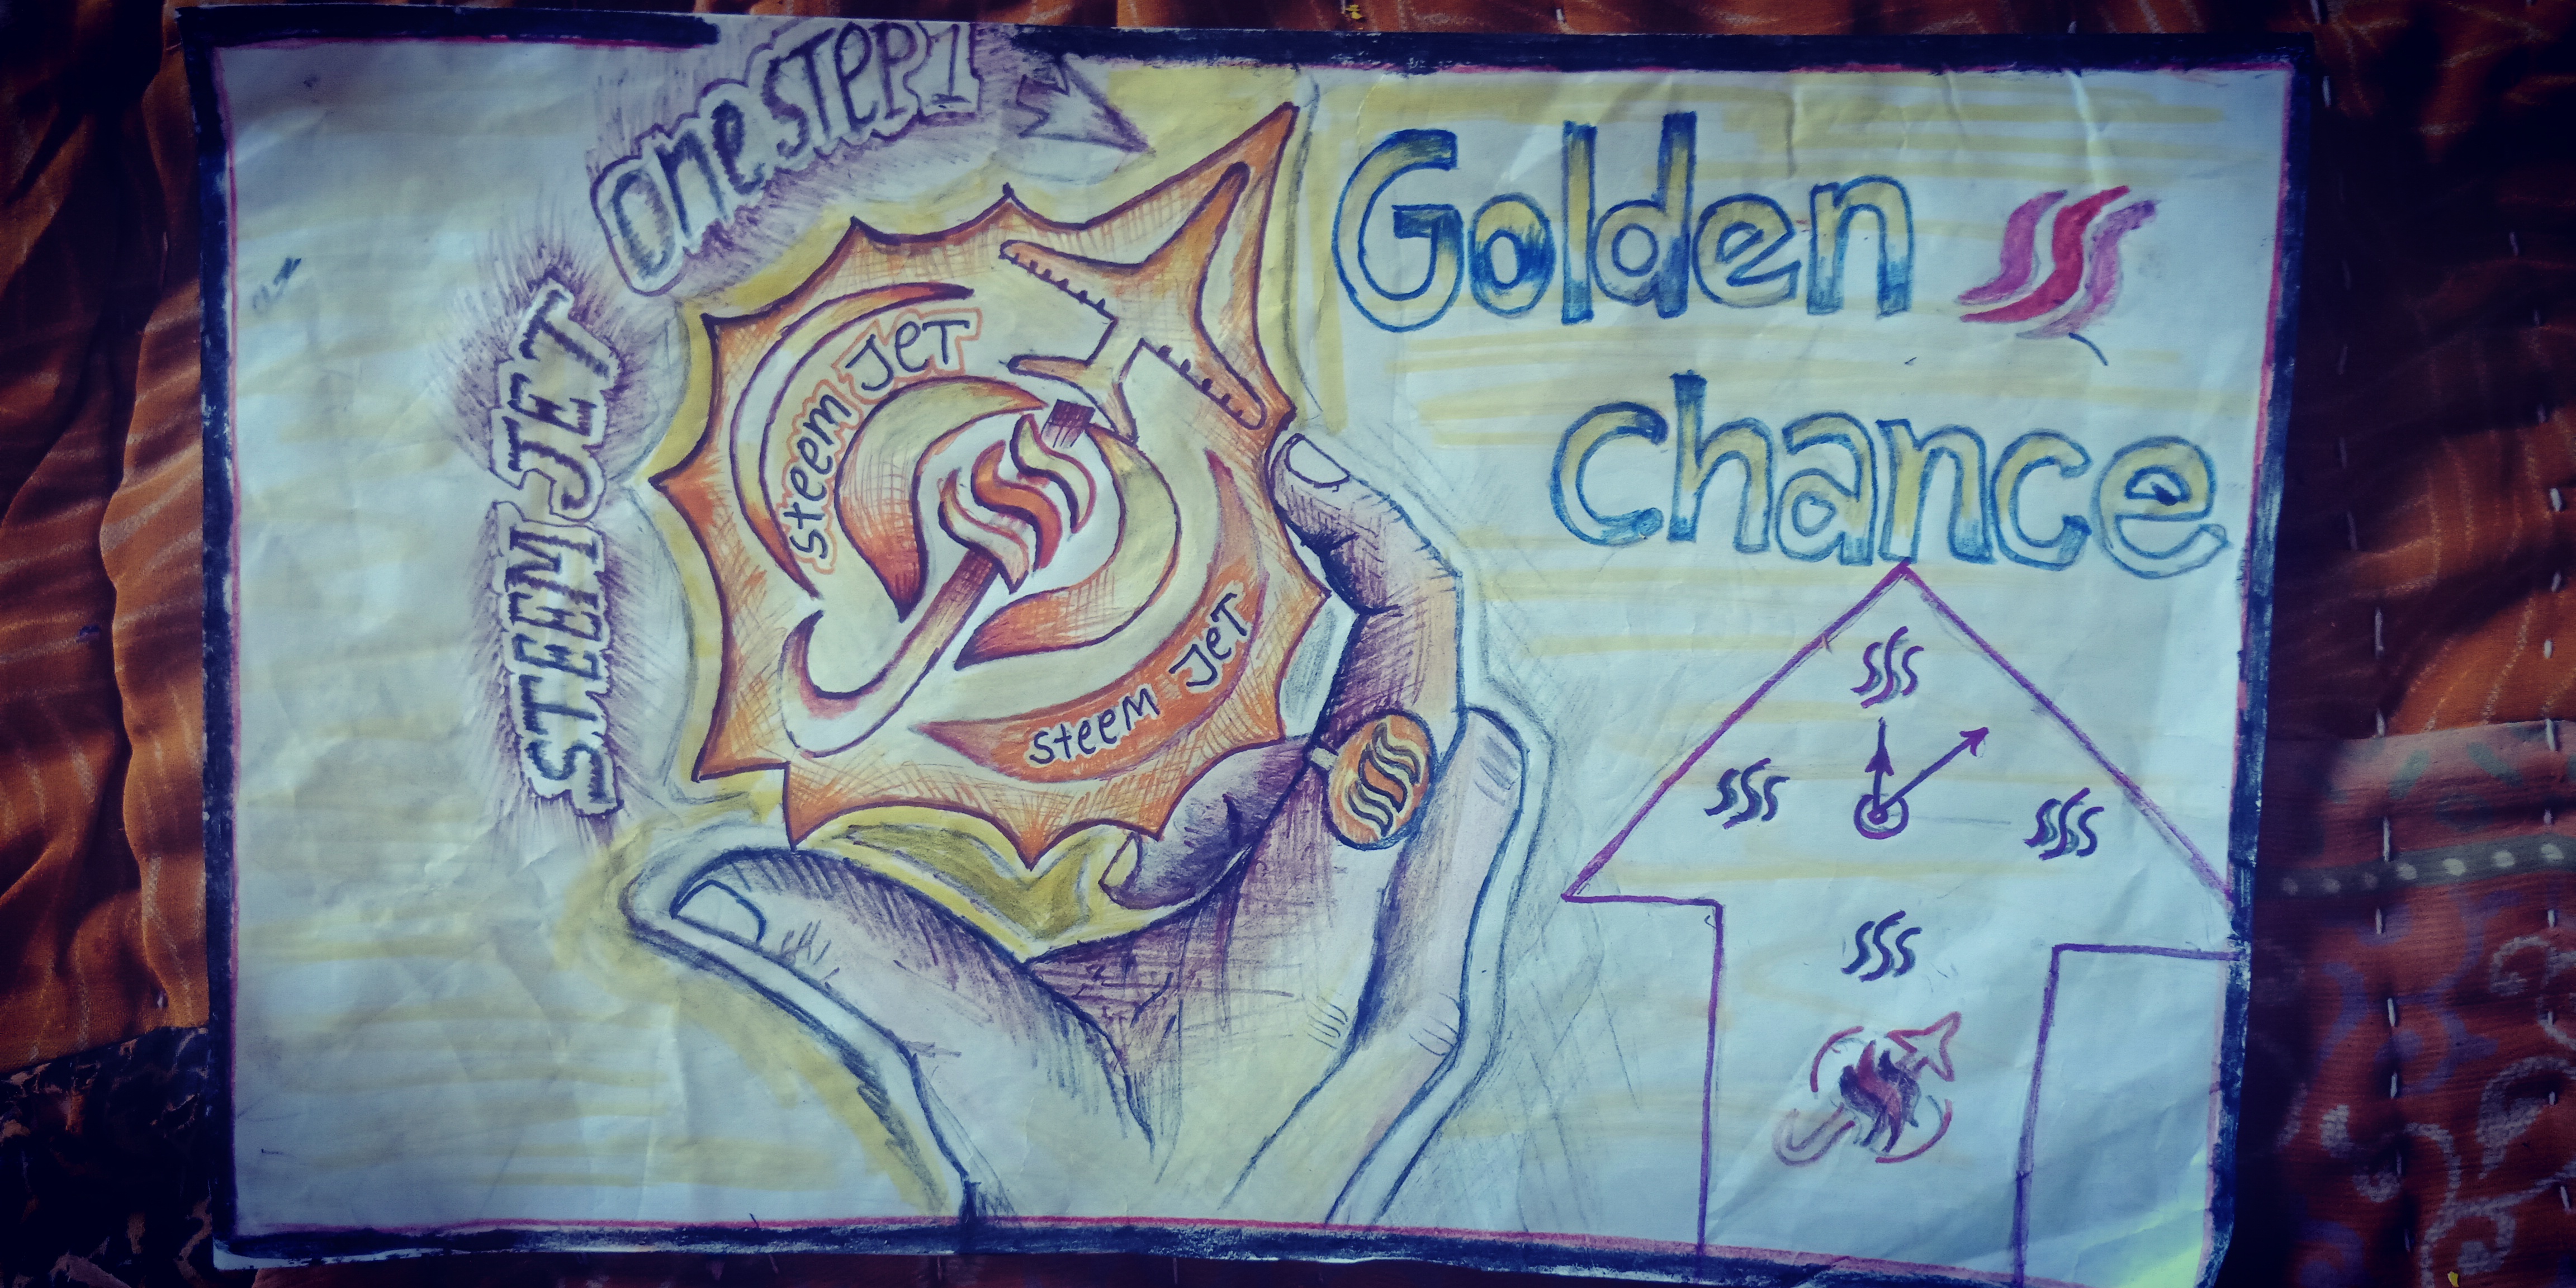 one STEP1
STEEM JET
steem JeT
steem JeT
Golden
chance